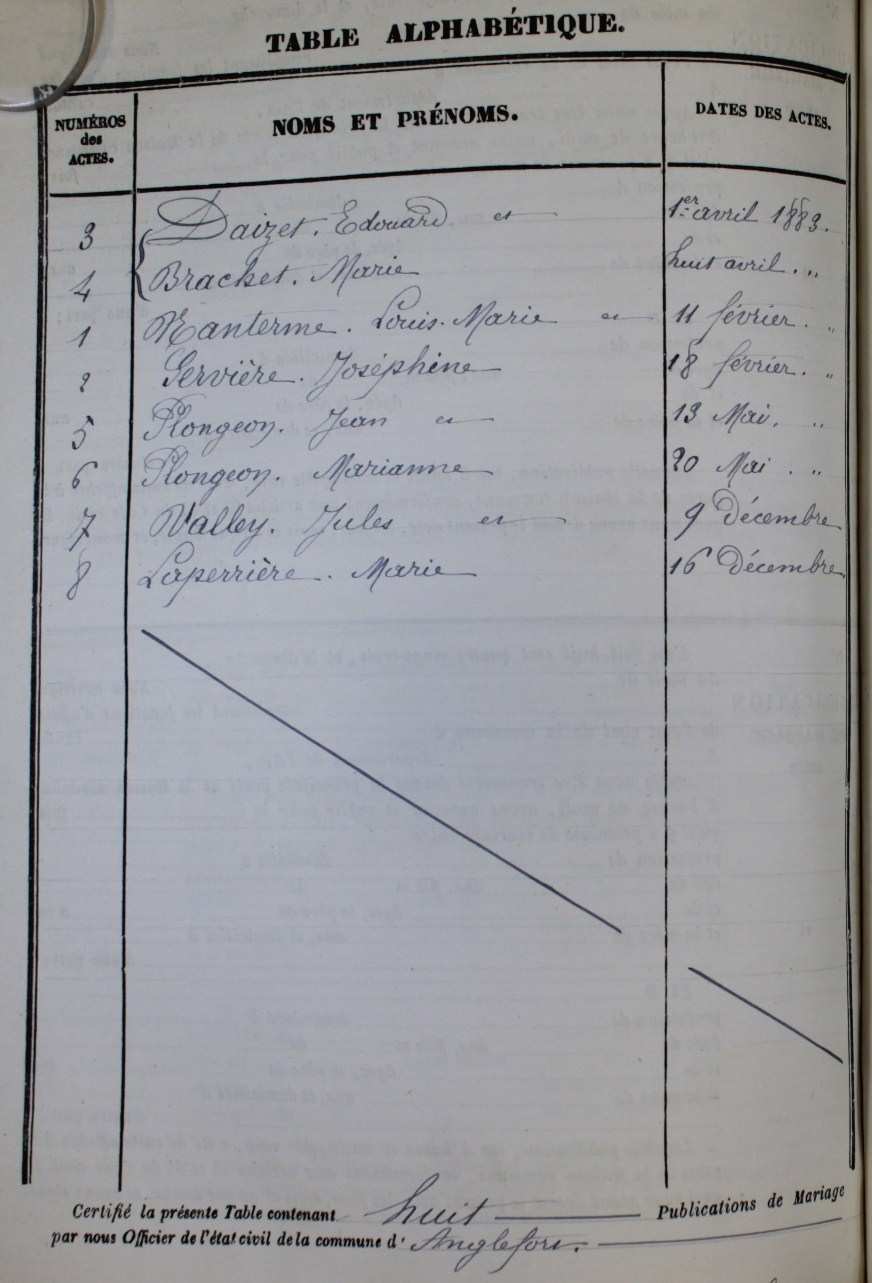 TABLE ALPHABÉTIQUE.
NUMÉROS des ACTES. NOMS ET PRÉNOMS. DATES DES ACTES.
3 Daizet. Edouard et 1er avril 1883.
4 Brachet. Marie huit avril. "
1 Nanterme. Louis. Marie et 11 février. "
2 Gervière. Joséphine 18 février. "
5 Plongeon. Jean et 13 Mai. "
6 Plongeon. Marianne 20 Mai. "
7 Valley. Jules et 9 Décembre
8 Laperrière. Marie 16 Décembre
Certifié la présente Table contenant huit Publications de Mariage
par nous Officier de l'état civil de la commune d' Anglefort.